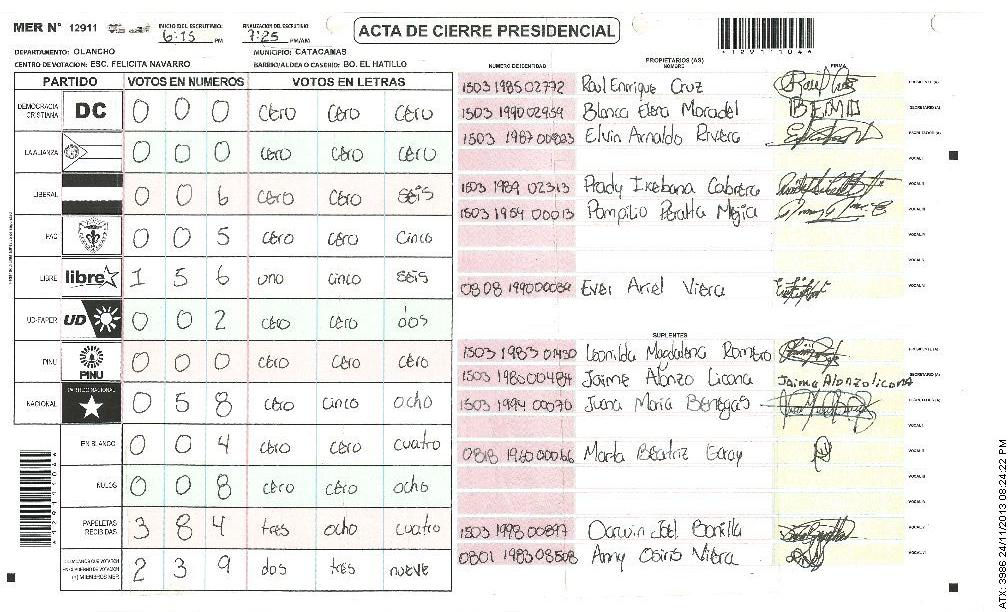 MER N° 12911
INICIO DEL ESCRUTINIO: 6:15 PM
FINALIZACION DEL ESCRUTINIO: 7:25 PM/AM
ACTA DE CIERRE PRESIDENCIAL
*12911104*
DEPARTAMENTO: OLANCHO
MUNICIPIO: CATACAMAS
CENTRO DE VOTACION: ESC. FELICITA NAVARRO
BARRIO/ALDEA O CASERIO: BO. EL HATILLO
PARTIDO VOTOS EN NUMEROS VOTOS EN LETRAS
DEMOCRACIA CRISTIANA DC 0 0 0 cero cero cero
LA ALIANZA 0 0 0 cero cero cero
LIBERAL 0 0 6 cero cero seis
PAC 0 0 5 cero cero cinco
LIBRE libre 1 5 6 uno cinco seis
UD-FAPER UD 0 0 2 cero cero dos
PINU PINU 0 0 0 cero cero cero
NACIONAL PARTIDO NACIONAL 0 5 8 cero cinco ocho
EN BLANCO 0 0 4 cero cero cuatro
NULOS 0 0 8 cero cero ocho
PAPELETAS RECIBIDAS 3 8 4 tres ocho cuatro
(+) MIEMBROS MER 2 3 9 dos tres nueve
PROPIETARIOS (AS)
NUMERO DE IDENTIDAD NOMBRE FIRMA
1503 1985 02772 Raul Enrique Cruz
1503 1990 02959 Blanca Elena Moradel BEMD
Elvin Arnaldo Rivera
Prady Ixebana Cabrera
1503 1954 00013 Pompilio Peralta Mejia
Ever Ariel Viera
SUPLENTES
1503 1983 01430 Leonilda Magdalena Romero
1503 1980 00484 Jaime Alonzo Licona Jaime Alonzo licona
1503 1994 00070 Juana Maria Benegas
0818 1960 00066 Marta Beatriz Garay
1503 1998 00897 Darwin Joel Bonilla
0801 1983 08508 Anny Osiris Viera
ATX: 3986 24/11/2013 08:24:22 PM